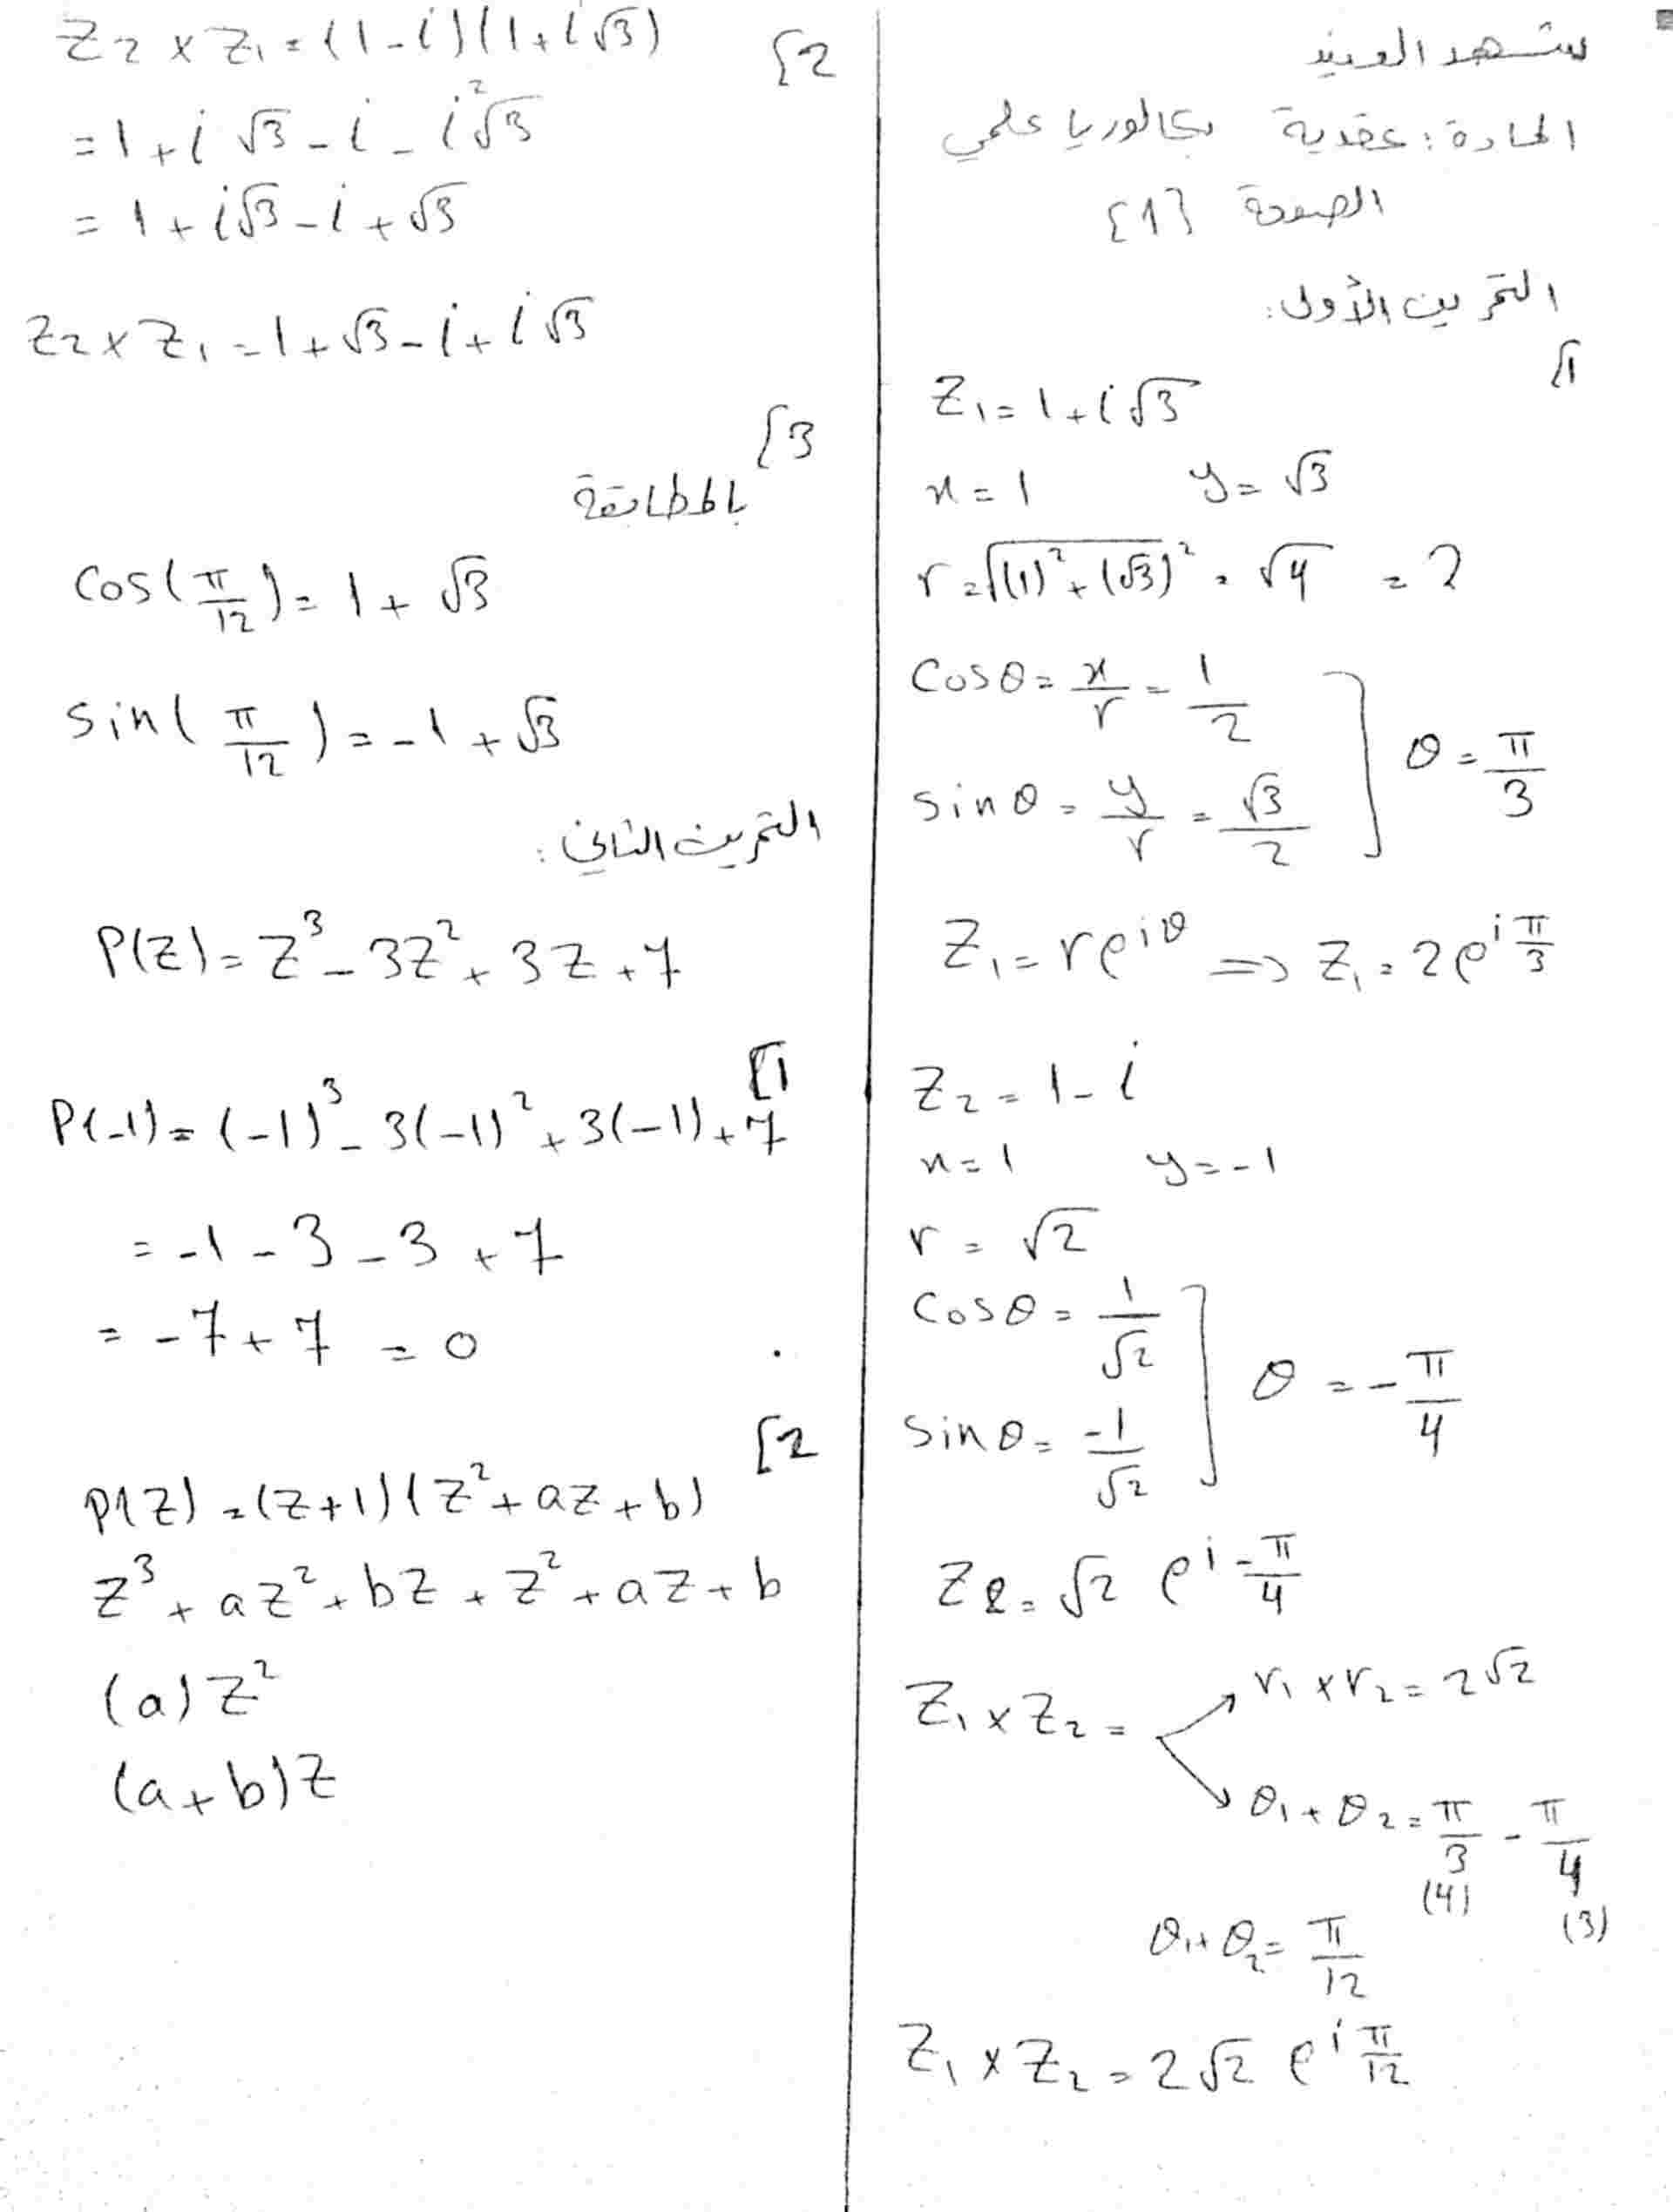 شهد العبيد
المادة: عقدية بكالوريا علمي
الصفحة {1}
التمرين الأول:
[1
Z₁ = 1 + i√3
x = 1 y = √3
r = √((1)² + (√3)²) = √4 = 2
cosθ = x/r = 1/2
sinθ = y/r = √3/2 ] θ = π/3
Z₁ = r e^(iθ) ⇒ Z₁ = 2e^(i π/3)
Z₂ = 1 - i
x = 1 y = -1
r = √2
cosθ = 1/√2
sinθ = -1/√2 ] θ = -π/4
Z₂ = √2 e^(i -π/4)
Z₁ × Z₂ = ↗ r₁ × r₂ = 2√2
↘ θ₁ + θ₂ = π/3 - π/4
(4) (3)
θ₁ + θ₂ = π/12
Z₁ × Z₂ = 2√2 e^(i π/12)
[2
Z₂ × Z₁ = (1 - i)(1 + i√3)
= 1 + i√3 - i - i²√3
= 1 + i√3 - i + √3
Z₂ × Z₁ = 1 + √3 - i + i√3
[3
بالمطابقة
cos(π/12) = 1 + √3
sin(π/12) = -1 + √3
التمرين الثاني:
P(Z) = Z³ - 3Z² + 3Z + 7
[1
P(-1) = (-1)³ - 3(-1)² + 3(-1) + 7
= -1 - 3 - 3 + 7
= -7 + 7 = 0
[2
P(Z) = (Z + 1)(Z² + aZ + b)
Z³ + aZ² + bZ + Z² + aZ + b
(a)Z²
(a + b)Z